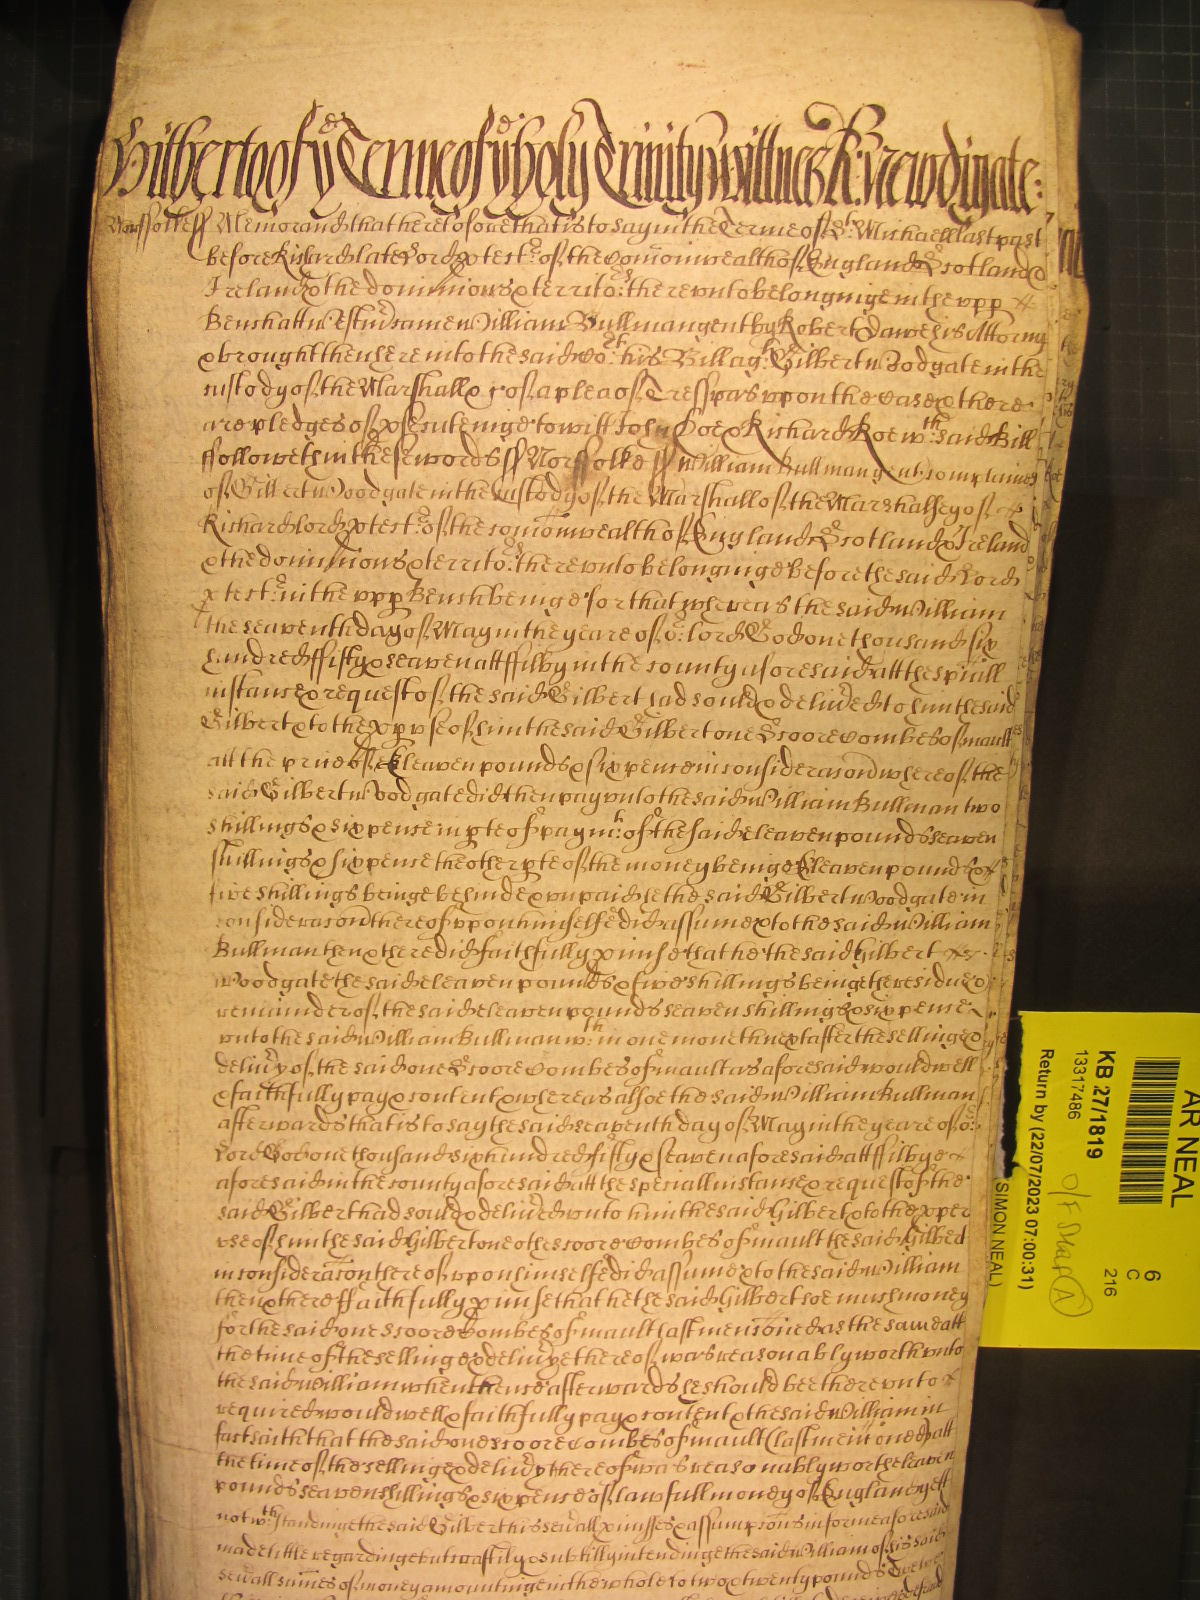 Yet of ye Terme of ye holy Trinity wittnes R: Newdigate:
Norffolke ss Memorand that heretofore that is to say in the Terme of St Michaell last past
before Richard late Lord Ptector of the Comonwealth of England Scotland &
Ireland & the dominions & territors thereunto belonginge in the upp
Bench att Westmr came William Bullman gent by Robert Dawe his Attorny
& brought then here into the said Cort his Bill agt Gilbert Woodgate in the
custody of the Marshall &c of a plea of Tresspas uppon the case & there
are pledges of psecutinge to witt John Doe & Richard Roe wch said Bill
ffolloweth in these words ss Norffolke ss William Bullman gent complaines
of Gilbert Woodgate in the Custody of the Marshall of the Marshalsey of
Richard lord Ptector of the comonwealth of England Scotland & Ireland
& the dominions & territors thereunto belonginge before the said Lord
Ptector in the upp Bench beinge for that whereas the said William
the seaventh day of May in the yeare of or lord God one thousand six
hundred ffifty & seaven att ffilby in the county aforesaid att the spiall
instance & request of the said Gilbert had sould & delived to him the said
Gilbert & to the pp use of him the said Gilbert one Scoore Combes of mault
att the price of Eleaven pounds & six pence in consideracon whereof the
said Gilbert Woodgate did then pay unto the said William Bullman two
shillings & six pence in pte of paymt of the said eleaven pounds seaven
shillings & six pence the other pte of the money beinge Eleaven pounds &
five shillings beinge behinde & unpaid he the said Gilbert Woodgate in
consideracon thereof uppon himselfe did assume & to the said William
Bullman then & there did faithfully pmise that he the said Gilbert
Woodgate the said eleaven pounds & five shillings beinge the residue &
remainder of the said eleaven pounds seaven shillings & six pence
unto the said William Bullman wthin one moneth next after the sellinge &
delivy of the said one Scoore Combes of mault as aforesaid would well
& faithfully pay & content & whereas alsoe the said William Bullman
afterwards that is to say the said seaventh day of May in the yeare of or
Lord God one thousand six hundred fifty & seaven aforesaid att ffilbye
aforesaid in the county aforesaid att the speciall instance & request of the
said Gilbert had sould & delived unto him the said Gilbert & to the pper
use of him the said Gilbert one other scoore combes of mault the said Gilbert
in consideracon thereof uppon himselfe did assume & to the said William
then & there ffaithfully pmise that he the said Gilbert soe much money
for the said one scoore Combes of mault last mencioned as the same att
the time of the sellinge & delivye thereof was reasonably worth unto
the said William when thence afterwards he should bee thereunto
required would well & faithfully pay & content & the said William in
fact saith that the said one scoore combes of mault last mencioned att
the time of the sellinge & delivy thereof was reasonably worth eleaven
pounds seaven shillings & six pence of lawfull money of England yett
notwthstandinge the said Gilbert his sevall pmisses & assumpcons in forme aforesaid
made little regardinge but craftily & subtilly intendinge the said William of his said
sevall sumes of money amountinge in the whole to two & twenty pounds twelve
AR NEAL
6
C
216
KB 27/1819
13317486
O/F Shelf A
Return by (22/07/2023 07:00:31)
SIMON NEAL)